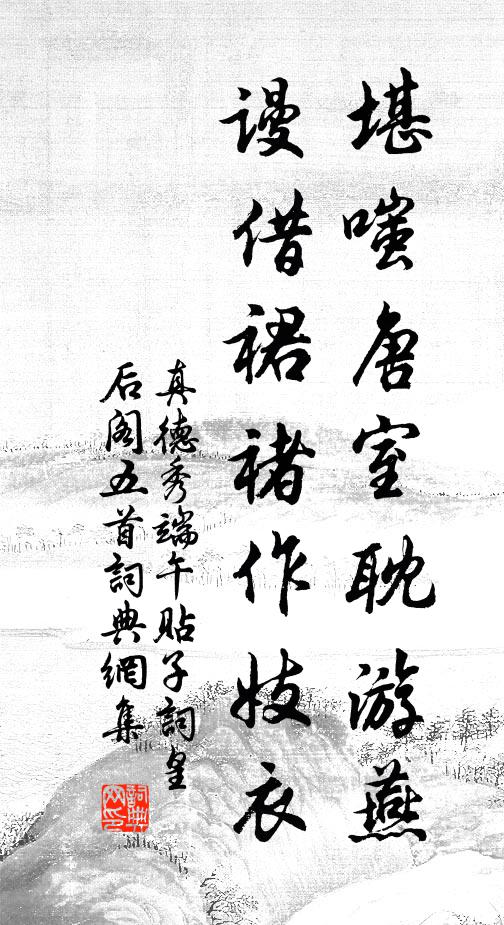 堪嗤唐室耽游燕
謾借裙褚作妓衣
真德秀端午貼子詞皇
后阁五首詞典網集
詞典网印